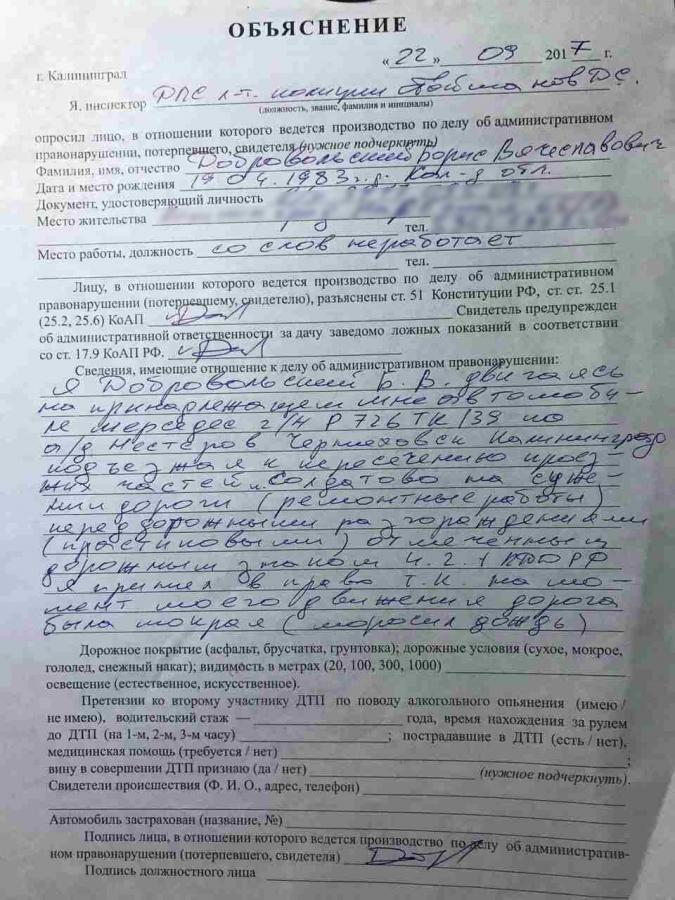 ОБЪЯСНЕНИЕ
« 22 » 09 2017 г.
г. Калининград
Я, инспектор ДПС л-т. полиции
(должность, звание, фамилия и инициалы)
опросил лицо, в отношении которого ведется производство по делу об административном
правонарушении, потерпевшего, свидетеля (нужное подчеркнуть)
Фамилия, имя, отчество Добровольский Борис Вячеславович
Дата и место рождения 19.04.1983 г.р. Кал-д обл.
Документ, удостоверяющий личность
Место жительства
тел.
Место работы, должность со слов неработает
тел.
Лицу, в отношении которого ведется производство по делу об административном
правонарушении (потерпевшему, свидетелю), разъяснены ст. 51 Конституции РФ, ст. ст. 25.1
(25.2, 25.6) КоАП Свидетель предупрежден
об административной ответственности за дачу заведомо ложных показаний в соответствии
со ст. 17.9 КоАП РФ.
Сведения, имеющие отношение к делу об административном правонарушении:
Я Добровольский Б. В. двигаясь
на принадлежащем мне автомоби-
ле мерседес г/н Р 726 ТК /39 по
а/д Нестеров Черняховск Калининград
подъезжая к пересечению проез-
жих частей п. Солдатово на суже-
нии дороги (ремонтные работы)
перед дорожными разгорождениями
(пластиковыми) отмеченным
дорожным знаком 4.2.1 ПДД РФ
я принял в право т.к. на мо-
мент моего движения дорога
была мокрая (моросил дождь)
Дорожное покрытие (асфальт, брусчатка, грунтовка); дорожные условия (сухое, мокрое,
гололед, снежный накат); видимость в метрах (20, 100, 300, 1000)
освещение (естественное, искусственное).
Претензии ко второму участнику ДТП по поводу алкогольного опьянения (имею /
не имею), водительский стаж — года, время нахождения за рулем
до ДТП (на 1-м, 2-м, 3-м часу) ; пострадавшие в ДТП (есть / нет),
медицинская помощь (требуется / нет) ;
вину в совершении ДТП признаю (да / нет) (нужное подчеркнуть).
Свидетели происшествия (Ф. И. О., адрес, телефон)
Автомобиль застрахован (название, №)
Подпись лица, в отношении которого ведется производство по делу об административ-
ном правонарушении (потерпевшего, свидетеля)
Подпись должностного лица